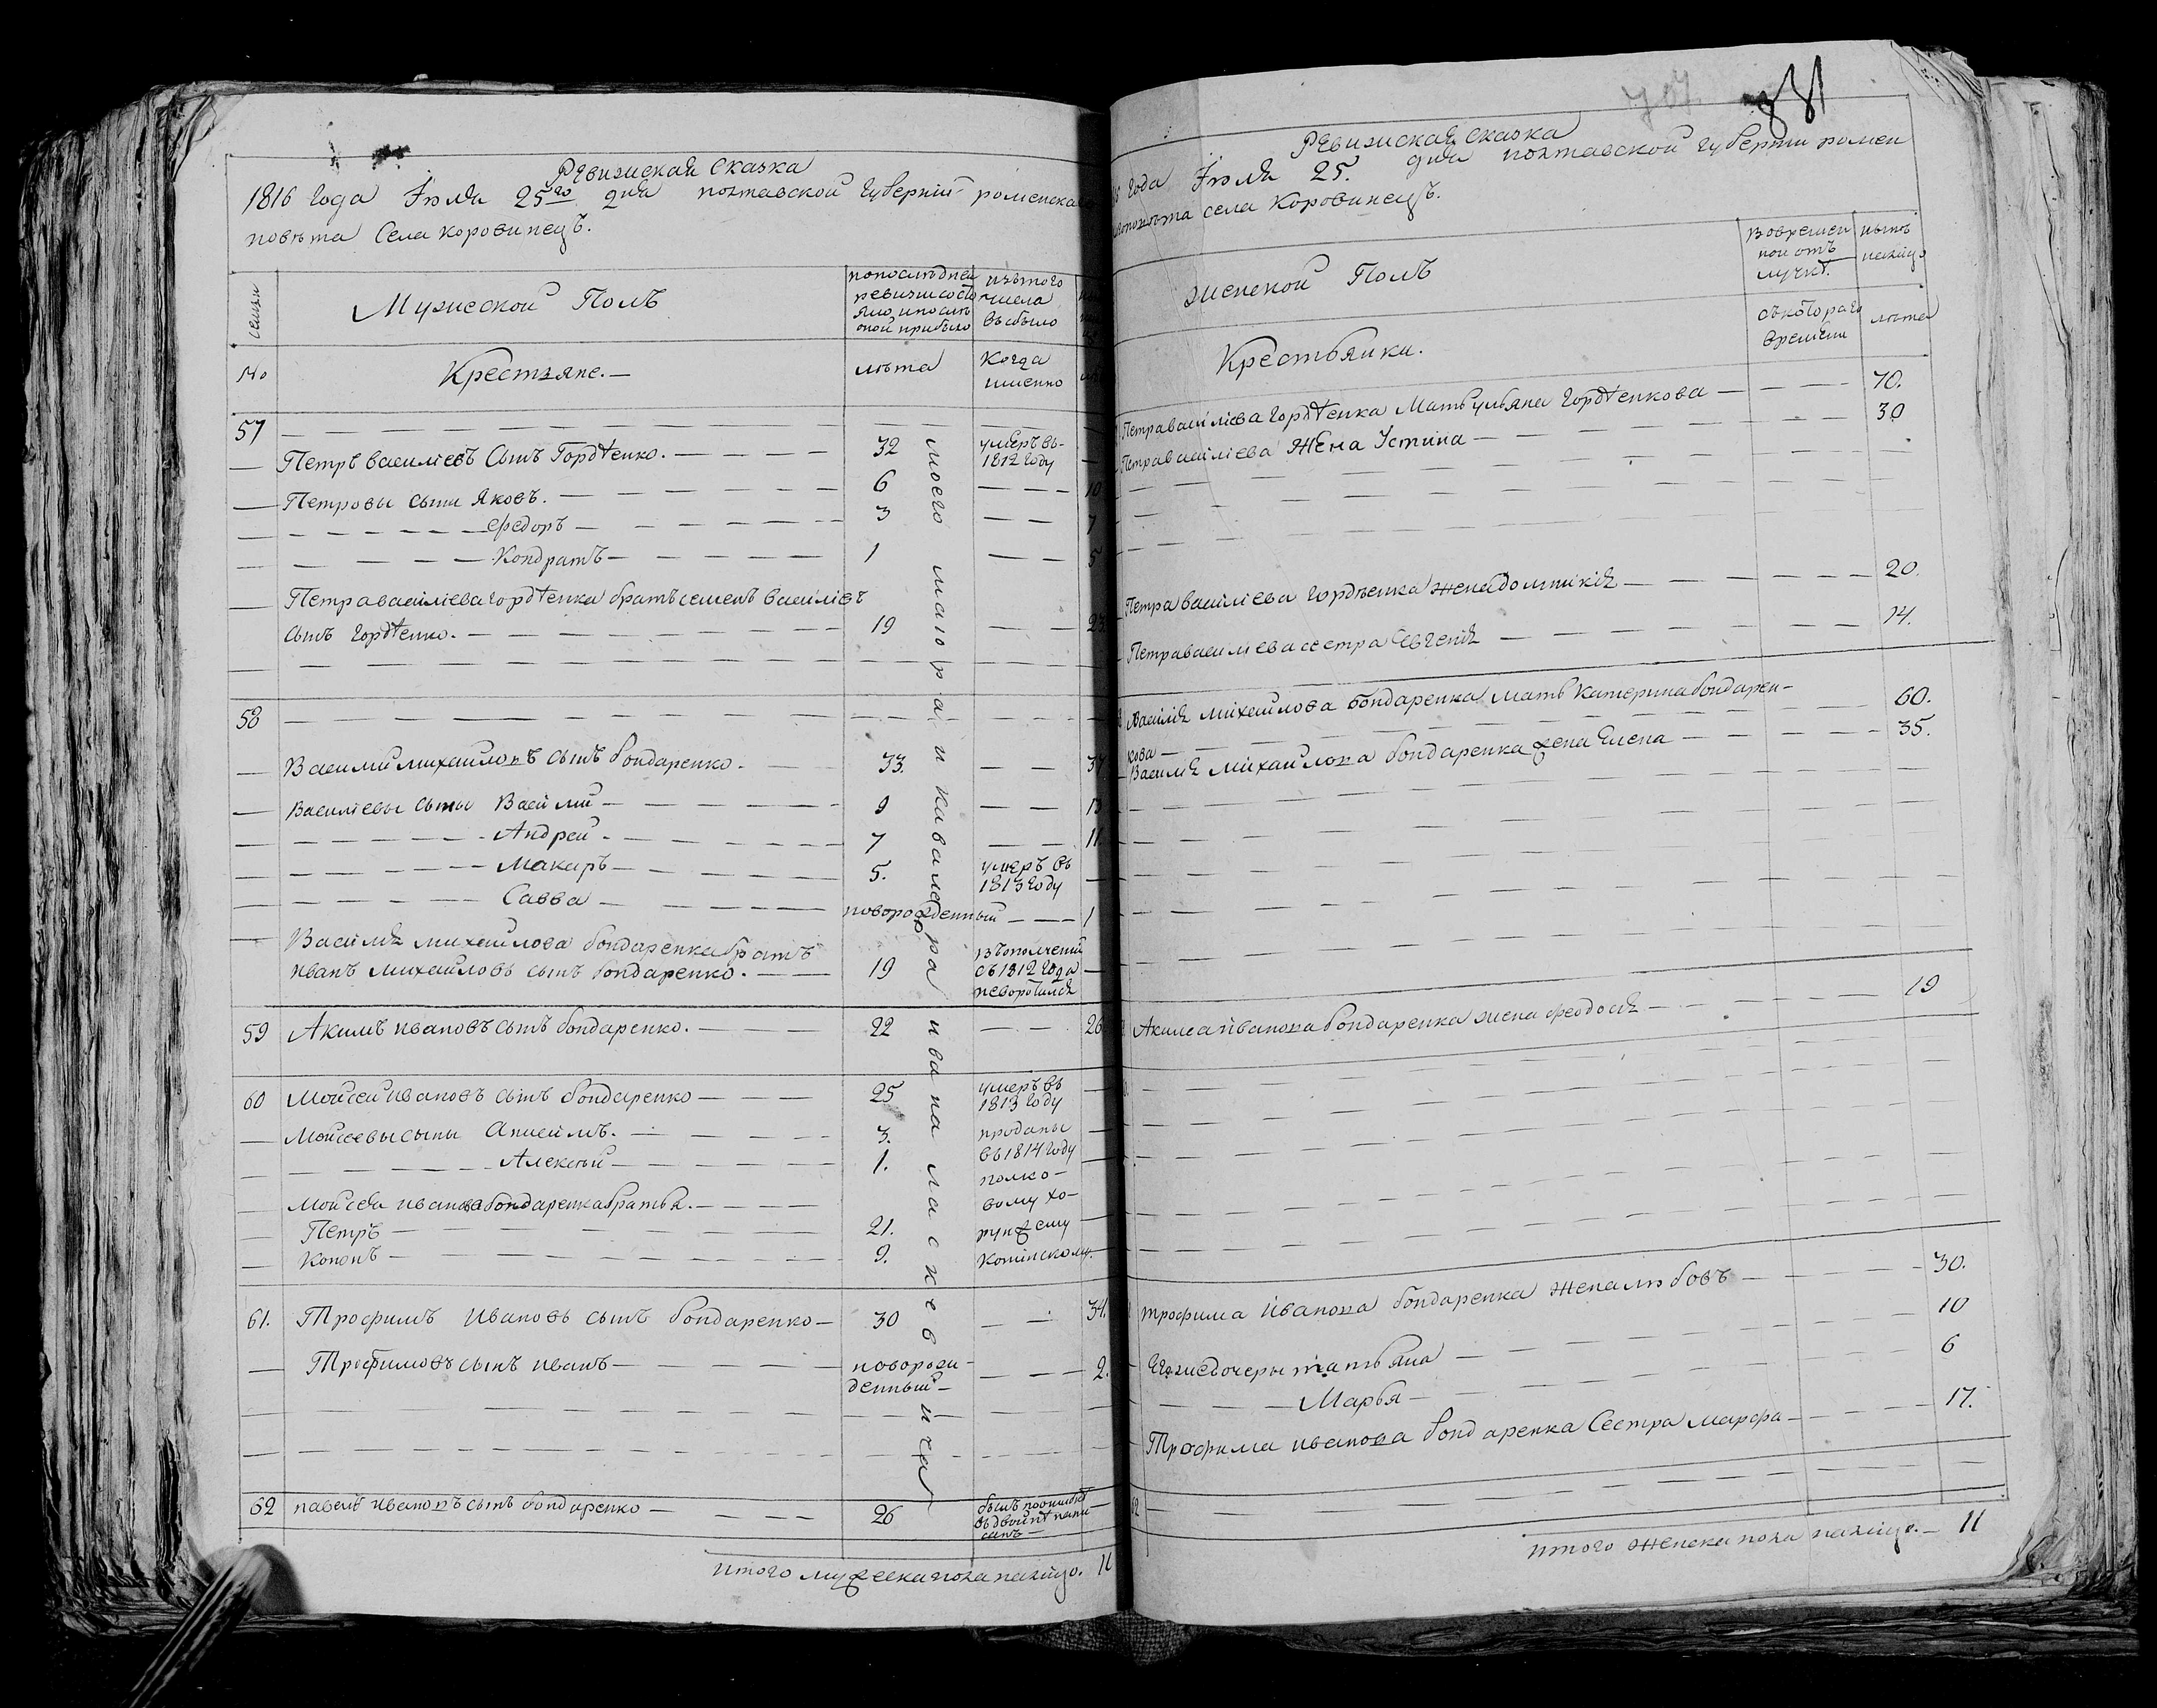 Ревизская сказка
1816 года Июля 25го дня полтавской губернии роменска
повѣта Села коровинецъ.
семьи
Мужеской Полъ
попослѣдней
ревизисосто
яло, ипослѣ
оной прибыло
изътого
числа
выбыло
№
Крестьяне.
лѣта
Когда
имѣнно
57
Петръ василіевъ Сынъ Гордѣенко. 32 умеръ въ
1812 году
Петровы сыны Яковъ. 6 10
Федоръ 3 7
Кондратъ 1 5
Петравасиліева гордѣенка братъ семенъ василіевъ
сынъ гордѣенко. 19 23
58
Василий михайловъ сынъ бондаренко. 33. 37
Василіевы сыны Василий 9 13
Андрей 7 11
Макаръ 5. умеръ въ
1813 году
Савва новорожденный 1
Василя михайлова бондаренка братъ
иванъ михайловъ сынъ бондаренко. 19 изъополчения
съ1812 года
неворотился
59 Акимъ ивановъ сынъ бондаренко. 22 26
60 Мойсей ивановъ сынъ бондаренко 25 умеръ въ
1813 году
Мойсеевы сыны Анисимъ. 3. проданы
Алексѣй 1. въ1814 году
полко-
Мойсея иванова бондаренка братья. вому хо-
Петръ 21. рунжему
Кононъ 9.
61. Трофимъ Ивановъ сынъ бондаренко 30 34.
Трофимовъ сынъ иванъ новорож-
денный 2.
62 павелъ ивановъ сынъ бондаренко 26 былъ поошибкѣ
вдвойнѣ напи
санъ
итого мужеска пола налицо. 11
моего маіора и кавалера ивана ласкевича
831
Ревизская сказка
года Июля 25. дня полтавской губерни ромен
повѣта села коровинецъ.
женской Полъ
вовремен
ной отъ
лучкѣ.
нынѣ
налицо
Крестьянки.
съкотораго
времени
лѣта
Петравасиліева гордѣенка Мать ульяна гордѣенкова 70.
Петравасиліева Жена Устина 30
Петра василіева гордѣенка жена 20.
Петравасилиева сестра Евгенія 14.
Василя михайлова бондаренка мать катерина бондарен-
кова 60.
Василя михайлова бондаренка жена Елена 35.
Акима иванова бондаренка жена феодосія 19
трофима иванова бондаренка жена любовъ 30.
Егожедочеры татьяна 10
Марья 6
Трофима иванова бондаренка Сестра марфа 17.
62
итого женска пола налицо. 11